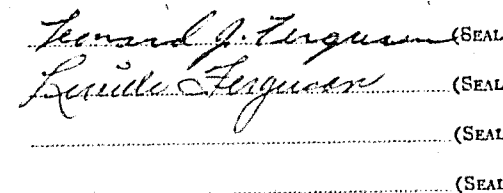 Leonard J. Ferguson (SEAL
Ferguson (SEAL
(SEAL
(SEAL